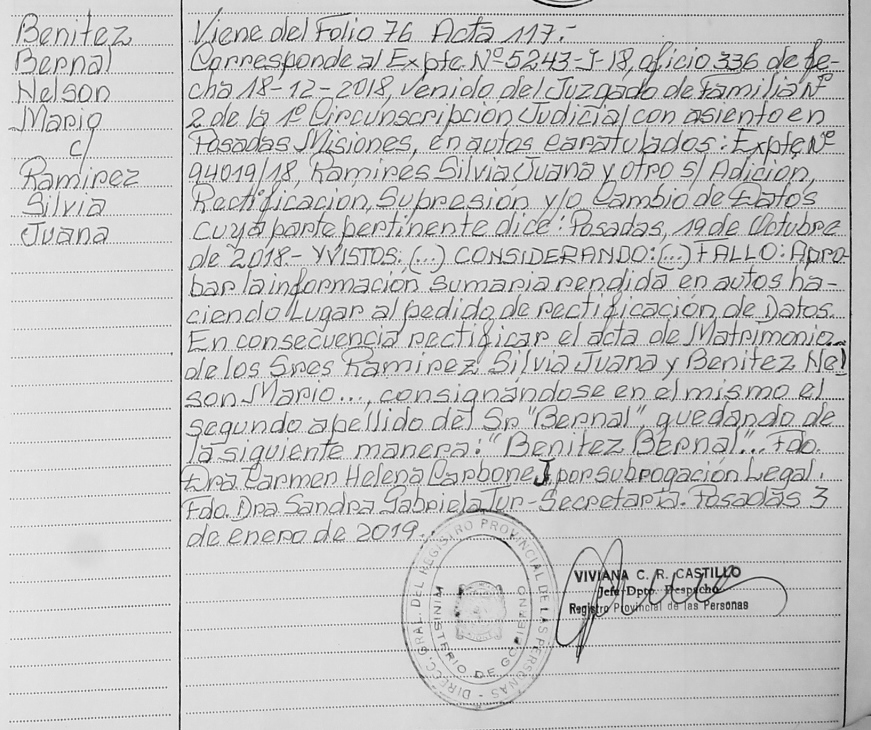 Benitez
Bernal
Nelson
Mario
c/
Ramirez
Silvia
Juana
Viene del Folio 76 Acta 117.-
Corresponde al Expte. Nº 5243-J-18, oficio 336 de fe-
cha 18-12-2018, venido del Juzgado de Familia Nº
2 de la 1º Circunscripción Judicial con asiento en
Posadas Misiones, en autos caratulados: Expte Nº
94019/18, Ramires Silvia Juana y otro s/ Adición,
Rectificación, Supresión y/o Cambio de Datos
cuya parte pertinente dice: Posadas, 19 de Octubre
de 2018.- Y VISTOS: (...) CONSIDERANDO: (...) FALLO: Apro-
bar la información sumaria rendida en autos ha-
ciendo Lugar al pedido de rectificación de Datos.
En consecuencia rectificar el acta de Matrimonio
de los Sres Ramirez Silvia Juana y Benitez Nel
son Mario..., consignándose en el mismo el
segundo apellido del Sr "Bernal", quedando de
la siguiente manera: "Benitez Bernal"... Fdo.
Dra Carmen Helena Carbone J. por subrogación Legal.
Fdo. Dra Sandra Gabriela Jur - Secretaria. Posadas 3
de enero de 2019.-
DIREC. GRAL. DEL REGISTRO PROVINCIAL DE LAS PERSONAS -
MINISTERIO DE GOBIERNO
VIVIANA C. R. CASTILLO
Jefa Dpto. Despacho
Registro Provincial de las Personas